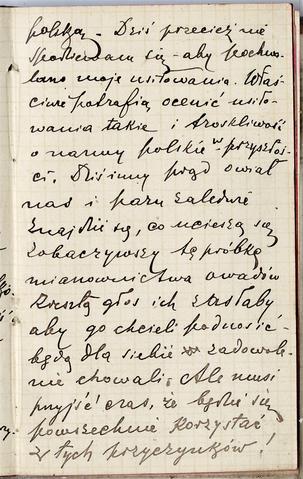 polską. - Dziś przecież nie
spodziewam się - aby pochwa-
lano moje usiłowania. Właś-
ciwie potrafią ocenić usiło-
wania takie i troskliwość
o nazwy polskie w przyszłoś-
ci. Dziś inny prąd owiał
nas i paru zaledwie
znajdzie się, co ucieszą się
zobaczywszy tę próbkę
mianownictwa owadów
zresztą głos ich zasłaby
aby go chcieli podnosić -
będą dla siebie zadowole-
nie chowali. Ale musi
przyjść czas, że będzie się
powszechnie korzystać
z tych przyczynków!